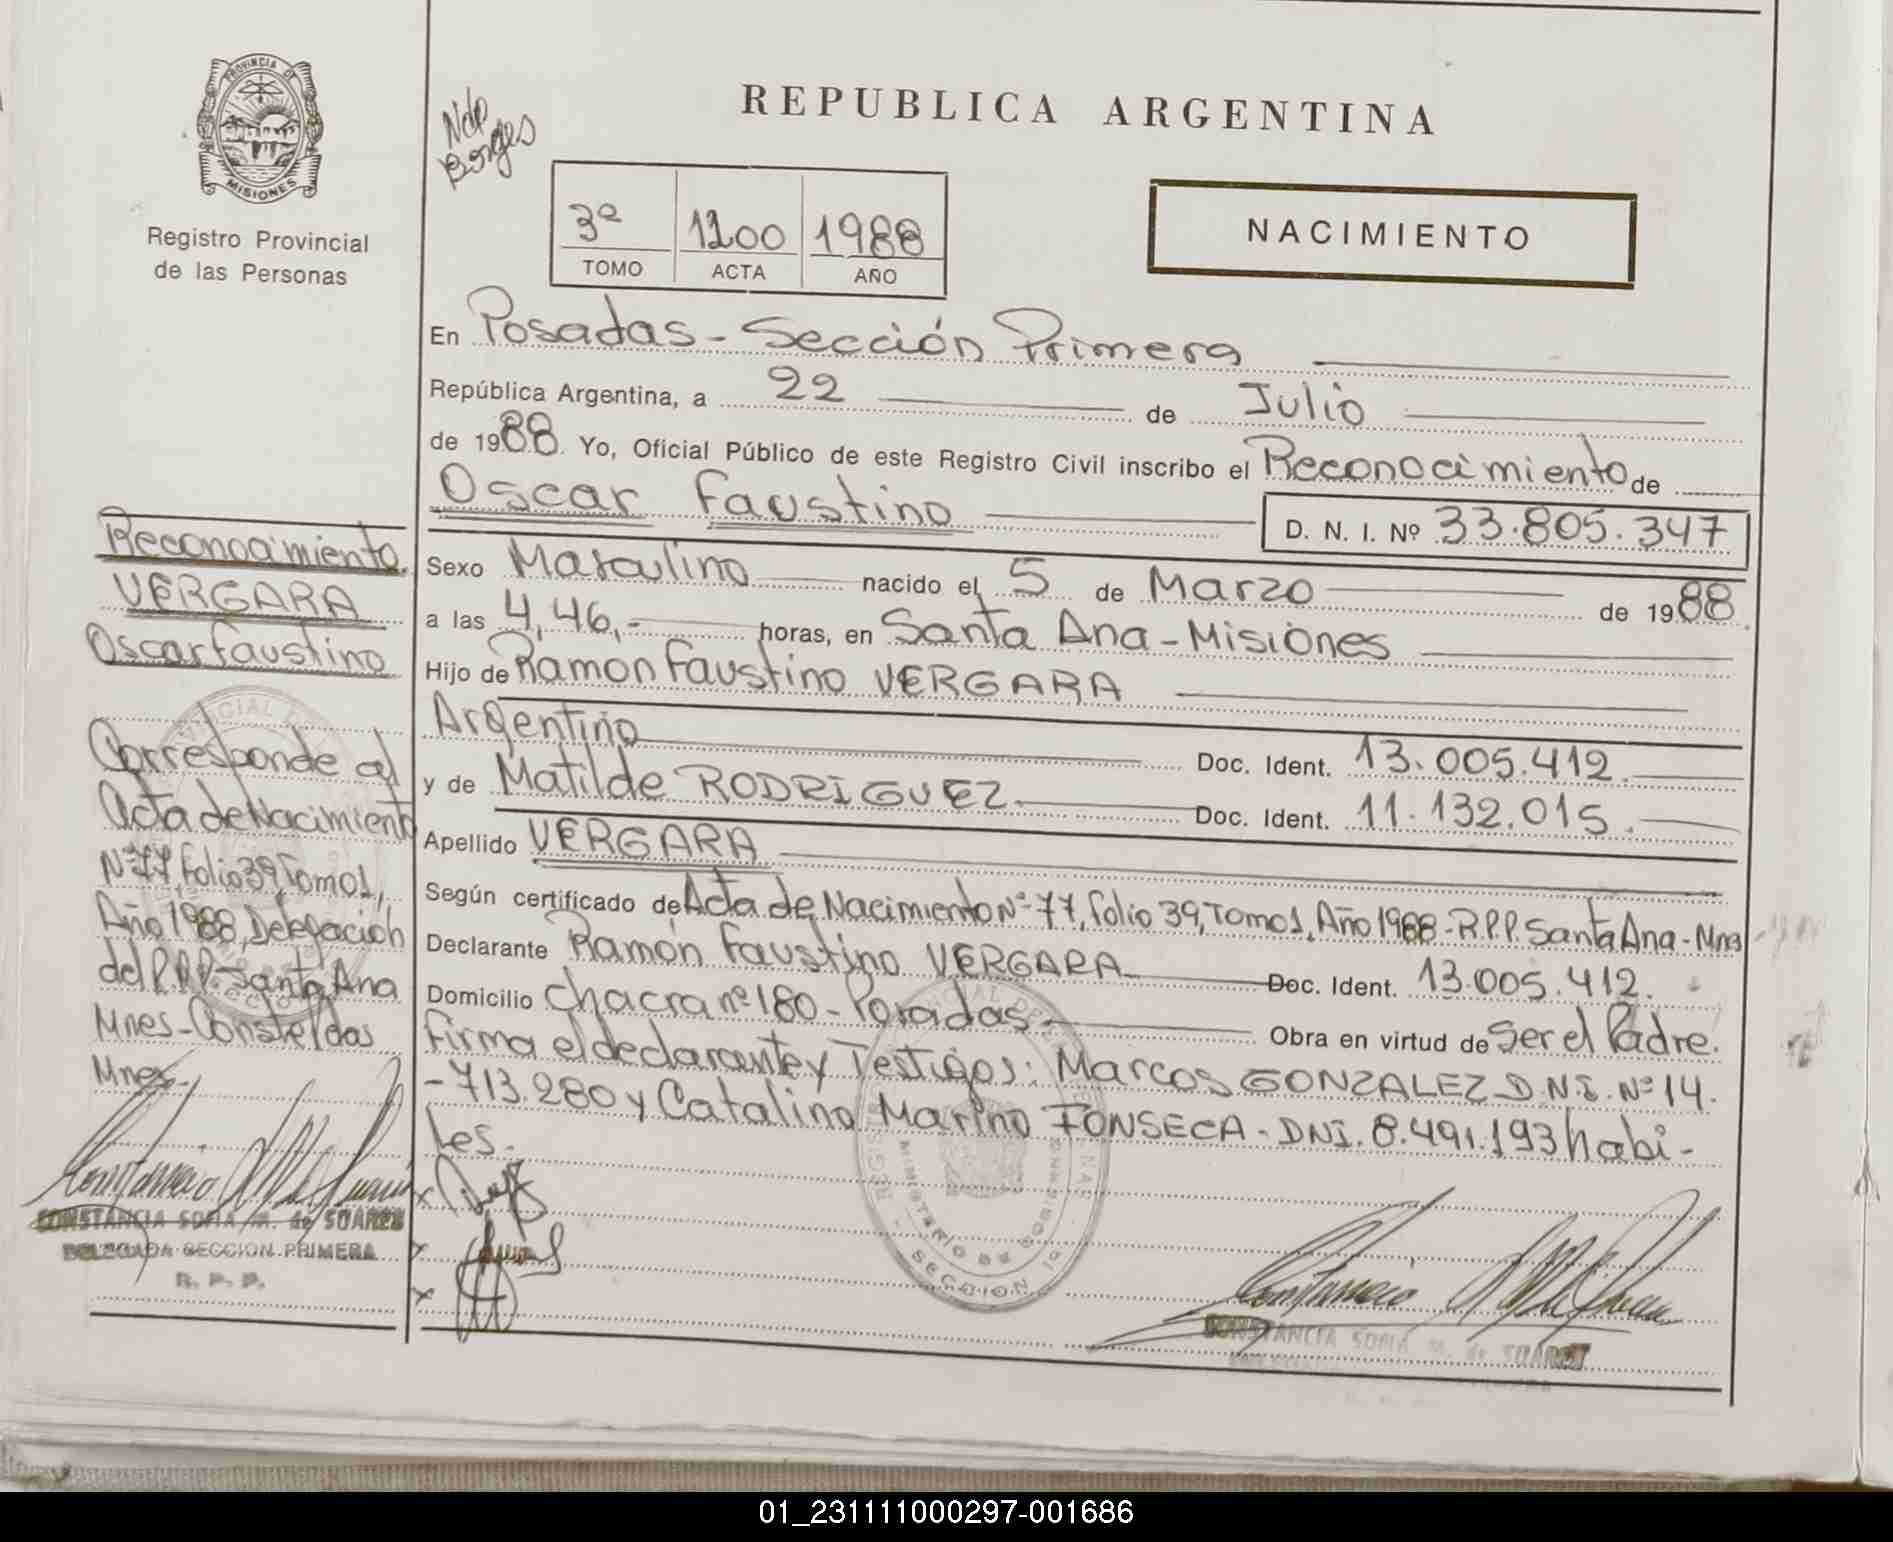 PROVINCIA DE
MISIONES
Registro Provincial
de las Personas
Ndo
Borges
REPUBLICA ARGENTINA
3º 1200 1988
TOMO ACTA AÑO
NACIMIENTO
En Posadas - Sección Primera
República Argentina, a 22 de Julio
de 1988. Yo, Oficial Público de este Registro Civil inscribo el Reconocimiento de
Oscar Faustino D. N. I. Nº 33.805.347
Sexo Masculino nacido el 5 de Marzo de 1988.
a las 4,46,- horas, en Santa Ana - Misiones
Hijo de Ramón Faustino VERGARA
Argentino Doc. Ident. 13.005.412.
y de Matilde RODRIGUEZ. Doc. Ident. 11.132.015.
Apellido VERGARA
Según certificado de Acta de Nacimiento Nº 77, folio 39, Tomo 1, Año 1988 - R.P.P. Santa Ana - Mnes
Declarante Ramón Faustino VERGARA Doc. Ident. 13.005.412.
Domicilio chacra nº 180 - Posadas. Obra en virtud de Ser el Padre.
Firma el declarante y Testigos: Marcos GONZALEZ D.N.I. Nº 14.
-713.280 y Catalino Marino FONSECA - DNI. 8.491.193 habi-
les.
Reconocimiento.
VERGARA
Oscar Faustino
Corresponde al
Acta de Nacimiento
Nº 77, folio 39, Tomo 1,
Año 1988, Delegación
del R.P.P. Santa Ana
Mnes - Conste / das
Mnes.
CONSTANCIA SOFIA M. de SUAREZ
DELEGADA SECCION PRIMERA
R. P. P.
MINISTERIO DE GOBIERNO
SECCION 1a
CONSTANCIA SOFIA M. de SUAREZ
01_231111000297-001686